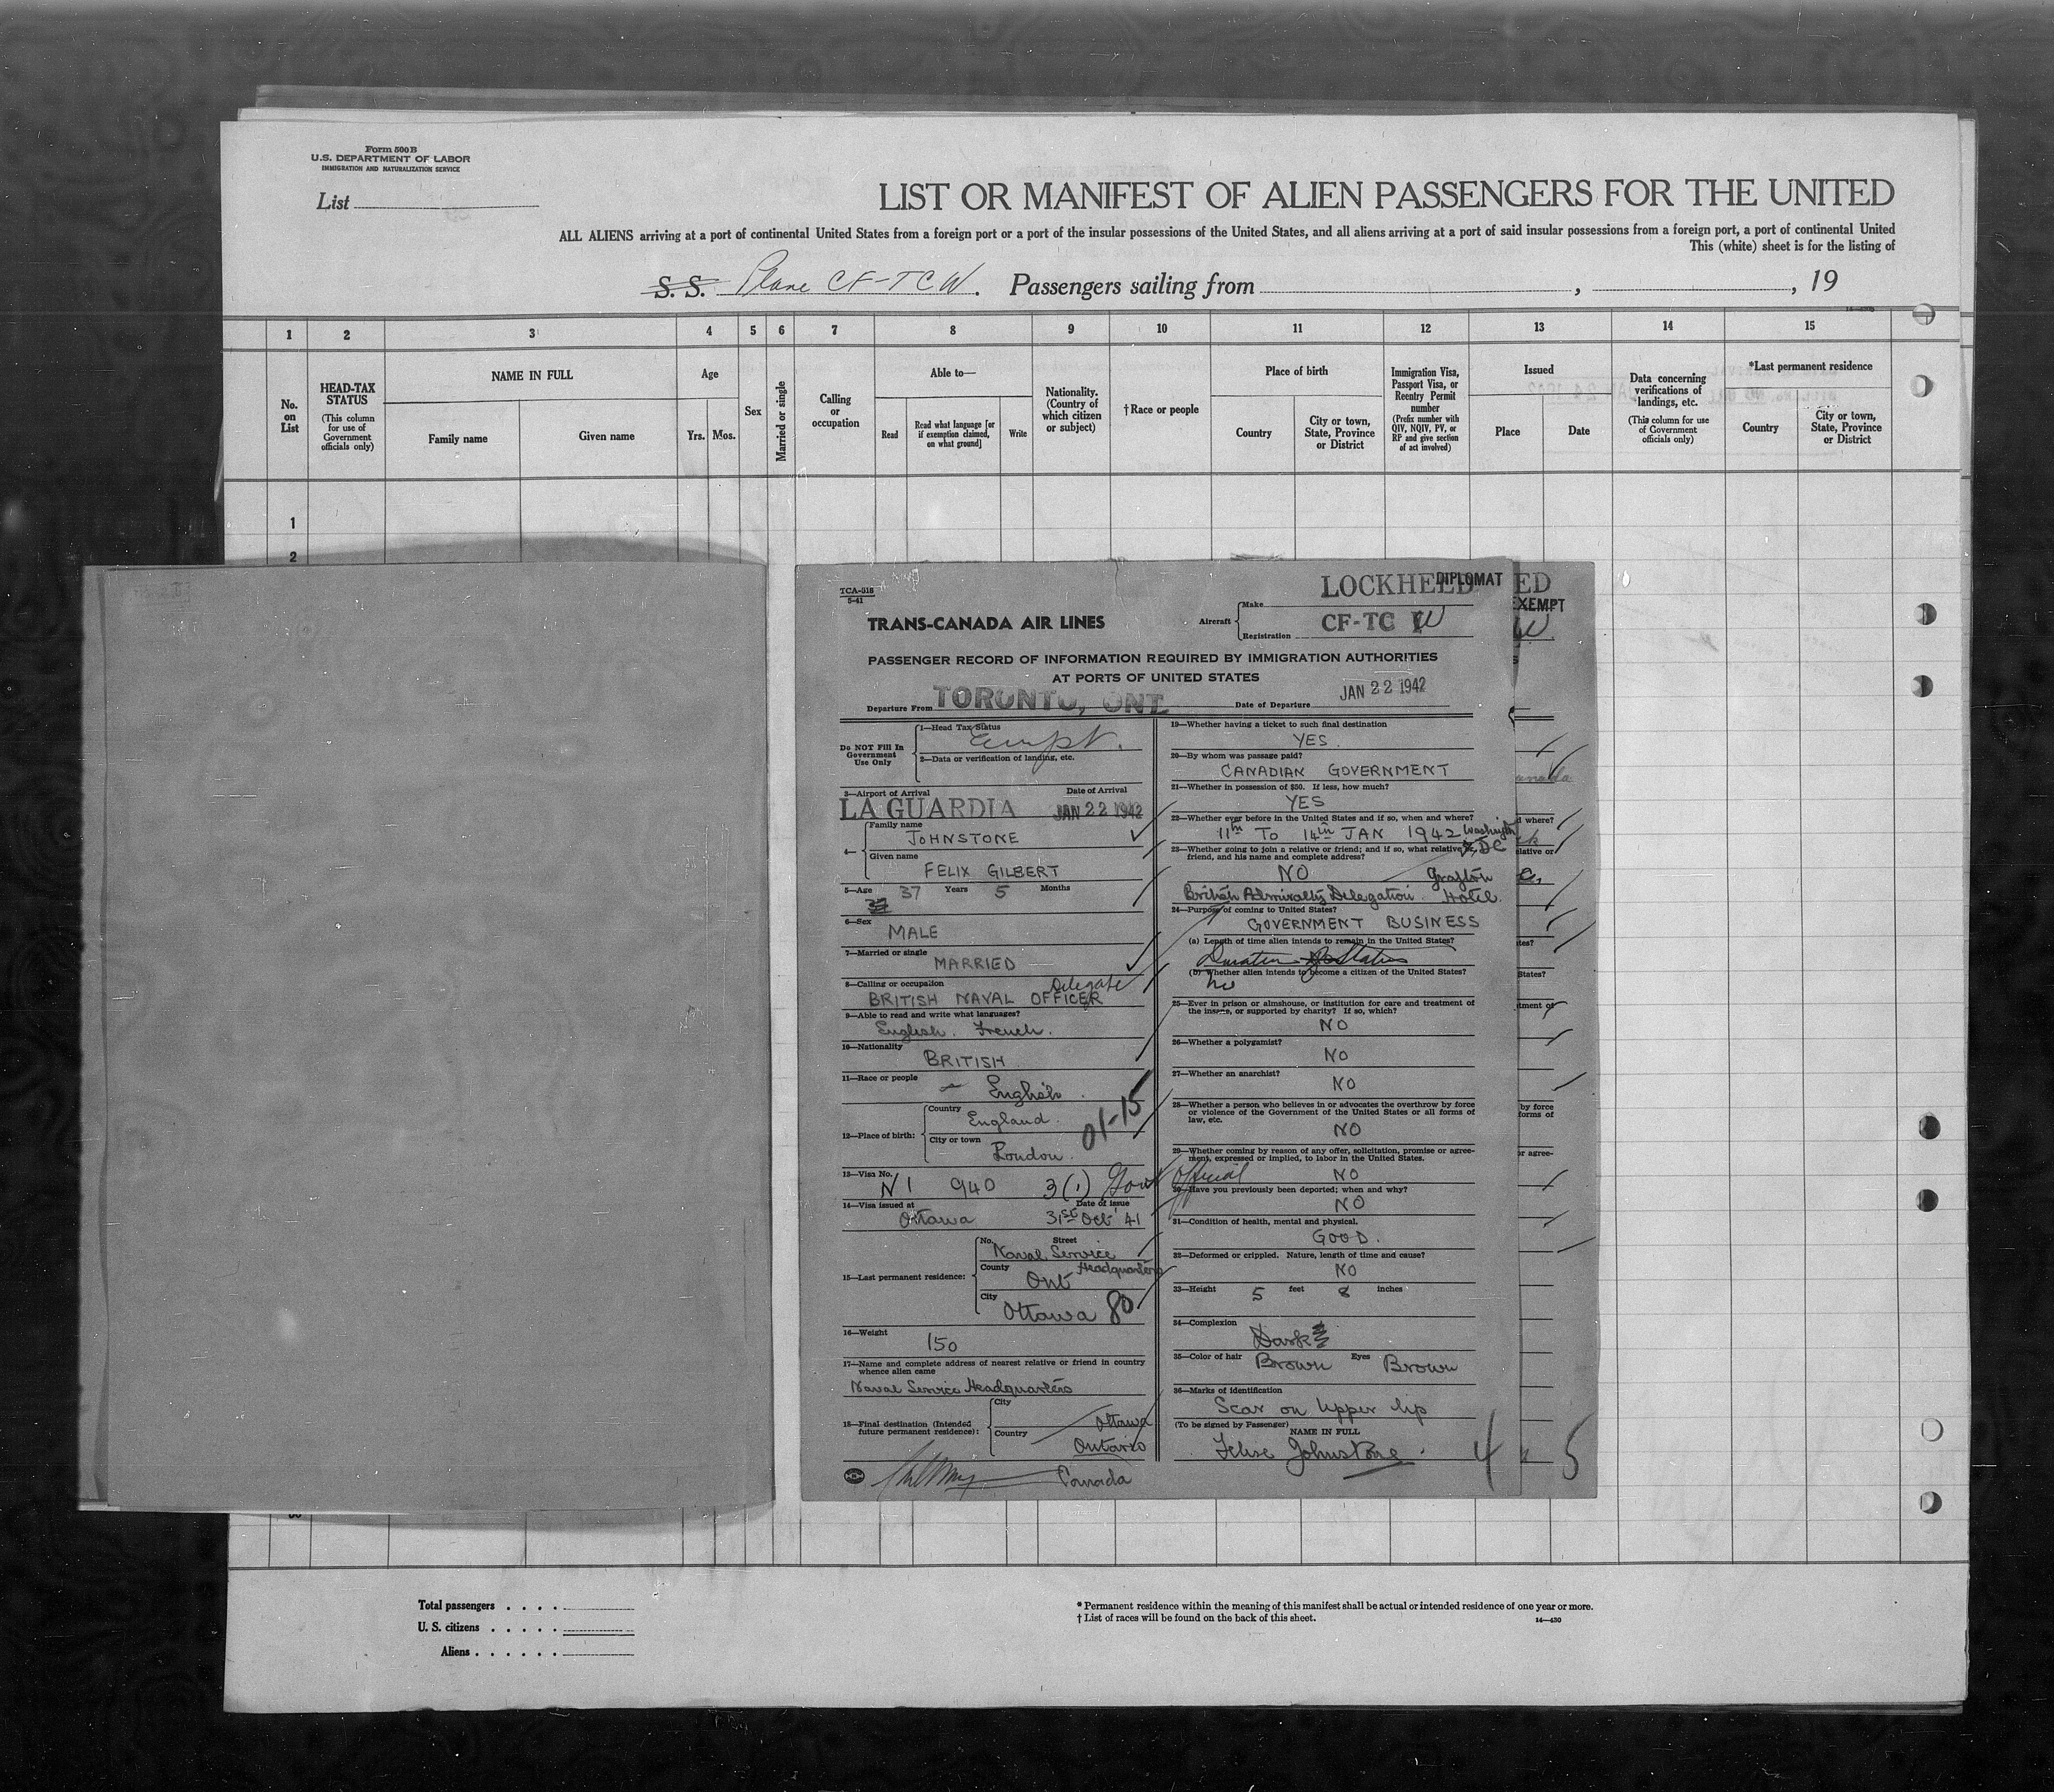 Form 500 B
U.S. DEPARTMENT OF LABOR
IMMIGRATION AND NATURALIZATION SERVICE
List
LIST OR MANIFEST OF ALIEN PASSENGERS FOR THE UNITED
ALL ALIENS arriving at a port of continental United States from a foreign port or a port of the insular possessions of the United States, and all aliens arriving at a port of said insular possessions from a foreign port, a port of continental United
This (white) sheet is for the listing of
S. S. Plane CF-TCW. Passengers sailing from , , 19
1 2 3 4 5 6 7 8 9 10 11 12 13 14 15
No. on List
HEAD-TAX STATUS
(This column for use of Government officials only)
NAME IN FULL
Family name
Given name
Age
Yrs. Mos.
Sex
Married or single
Calling or occupation
Able to—
Read
Read what language [or if exemption claimed, on what ground]
Write
Nationality. (Country of which citizen or subject)
†Race or people
Place of birth
Country
City or town, State, Province or District
Immigration Visa, Passport Visa, or Reentry Permit number
(Prefix number with QIV, NQIV, PV, or RP and give section of act involved)
Issued
Place
Date
Data concerning verifications of landings, etc.
(This column for use of Government officials only)
*Last permanent residence
Country
City or town, State, Province or District
1
2
TCA-318
5-41
TRANS-CANADA AIR LINES
Aircraft
Make LOCKHEED
DIPLOMAT
Registration CF-TC W
ED
EXEMPT
W
PASSENGER RECORD OF INFORMATION REQUIRED BY IMMIGRATION AUTHORITIES
AT PORTS OF UNITED STATES
Departure From TORONTO, ONT.
Date of Departure JAN 22 1942
Do NOT Fill In Government Use Only
1—Head Tax Status
Exempt.
2—Data or verification of landing, etc.
3—Airport of Arrival Date of Arrival
LA GUARDIA JAN 22 1942
4—
Family name
JOHNSTONE
Given name
FELIX GILBERT
5—Age 37 Years 5 Months
6—Sex
MALE
7—Married or single
MARRIED
8—Calling or occupation
Delegate
BRITISH NAVAL OFFICER
9—Able to read and write what languages?
English. French.
10—Nationality
BRITISH
11—Race or people
English
12—Place of birth:
Country
England
City or town
London
01-15
13—Visa No.
N I 940 3(1) Govt Official
14—Visa issued at Date of issue
Ottawa 31st Oct 41
15—Last permanent residence:
No. Street
Naval Service Headquarters
County
Ont
City
Ottawa 80
16—Weight
150
17—Name and complete address of nearest relative or friend in country whence alien came
Naval Service Headquarters
18—Final destination (Intended future permanent residence):
City
Ottawa
Country
Ontario
Canada
19—Whether having a ticket to such final destination
YES.
20—By whom was passage paid?
CANADIAN GOVERNMENT
21—Whether in possession of $50. If less, how much?
YES
22—Whether ever before in the United States and if so, when and where?
11th TO 14th JAN 1942 Washington DC
23—Whether going to join a relative or friend; and if so, what relative or
friend, and his name and complete address?
NO
Grafton Hotel.
British Admiralty Delegation.
24—Purpose of coming to United States?
GOVERNMENT BUSINESS
(a) Length of time alien intends to remain in the United States?
Duration of Status
(b) Whether alien intends to become a citizen of the United States?
no
25—Ever in prison or almshouse, or institution for care and treatment of
the insane, or supported by charity? If so, which?
NO
26—Whether a polygamist?
NO
27—Whether an anarchist?
NO
28—Whether a person who believes in or advocates the overthrow by force
or violence of the Government of the United States or all forms of
law, etc.
NO
29—Whether coming by reason of any offer, solicitation, promise or agree-
ment, expressed or implied, to labor in the United States.
NO
30—Have you previously been deported; when and why?
NO
31—Condition of health, mental and physical.
GOOD.
32—Deformed or crippled. Nature, length of time and cause?
NO
33—Height 5 feet 8 inches
34—Complexion
Dark
35—Color of hair Brown Eyes Brown
36—Marks of identification
Scar on Upper lip
(To be signed by Passenger)
NAME IN FULL
Felix Johnstone.
4 5
Total passengers
U. S. citizens
Aliens
* Permanent residence within the meaning of this manifest shall be actual or intended residence of one year or more.
† List of races will be found on the back of this sheet.
14—430